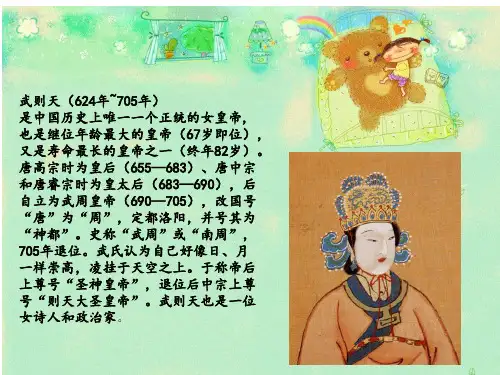 武则天（624年~705年）
是中国历史上唯一一个正统的女皇帝，
也是继位年龄最大的皇帝（67岁即位），
又是寿命最长的皇帝之一（终年82岁）。
唐高宗时为皇后（655—683）、唐中宗
和唐睿宗时为皇太后（683—690），后
自立为武周皇帝（690—705），改国号
“唐”为“周”，定都洛阳，并号其为
“神都”。史称“武周”或“南周”，
705年退位。武氏认为自己好像日、月
一样崇高，凌挂于天空之上。于称帝后
上尊号“圣神皇帝”，退位后中宗上尊
号“则天大圣皇帝”。武则天也是一位
女诗人和政治家。